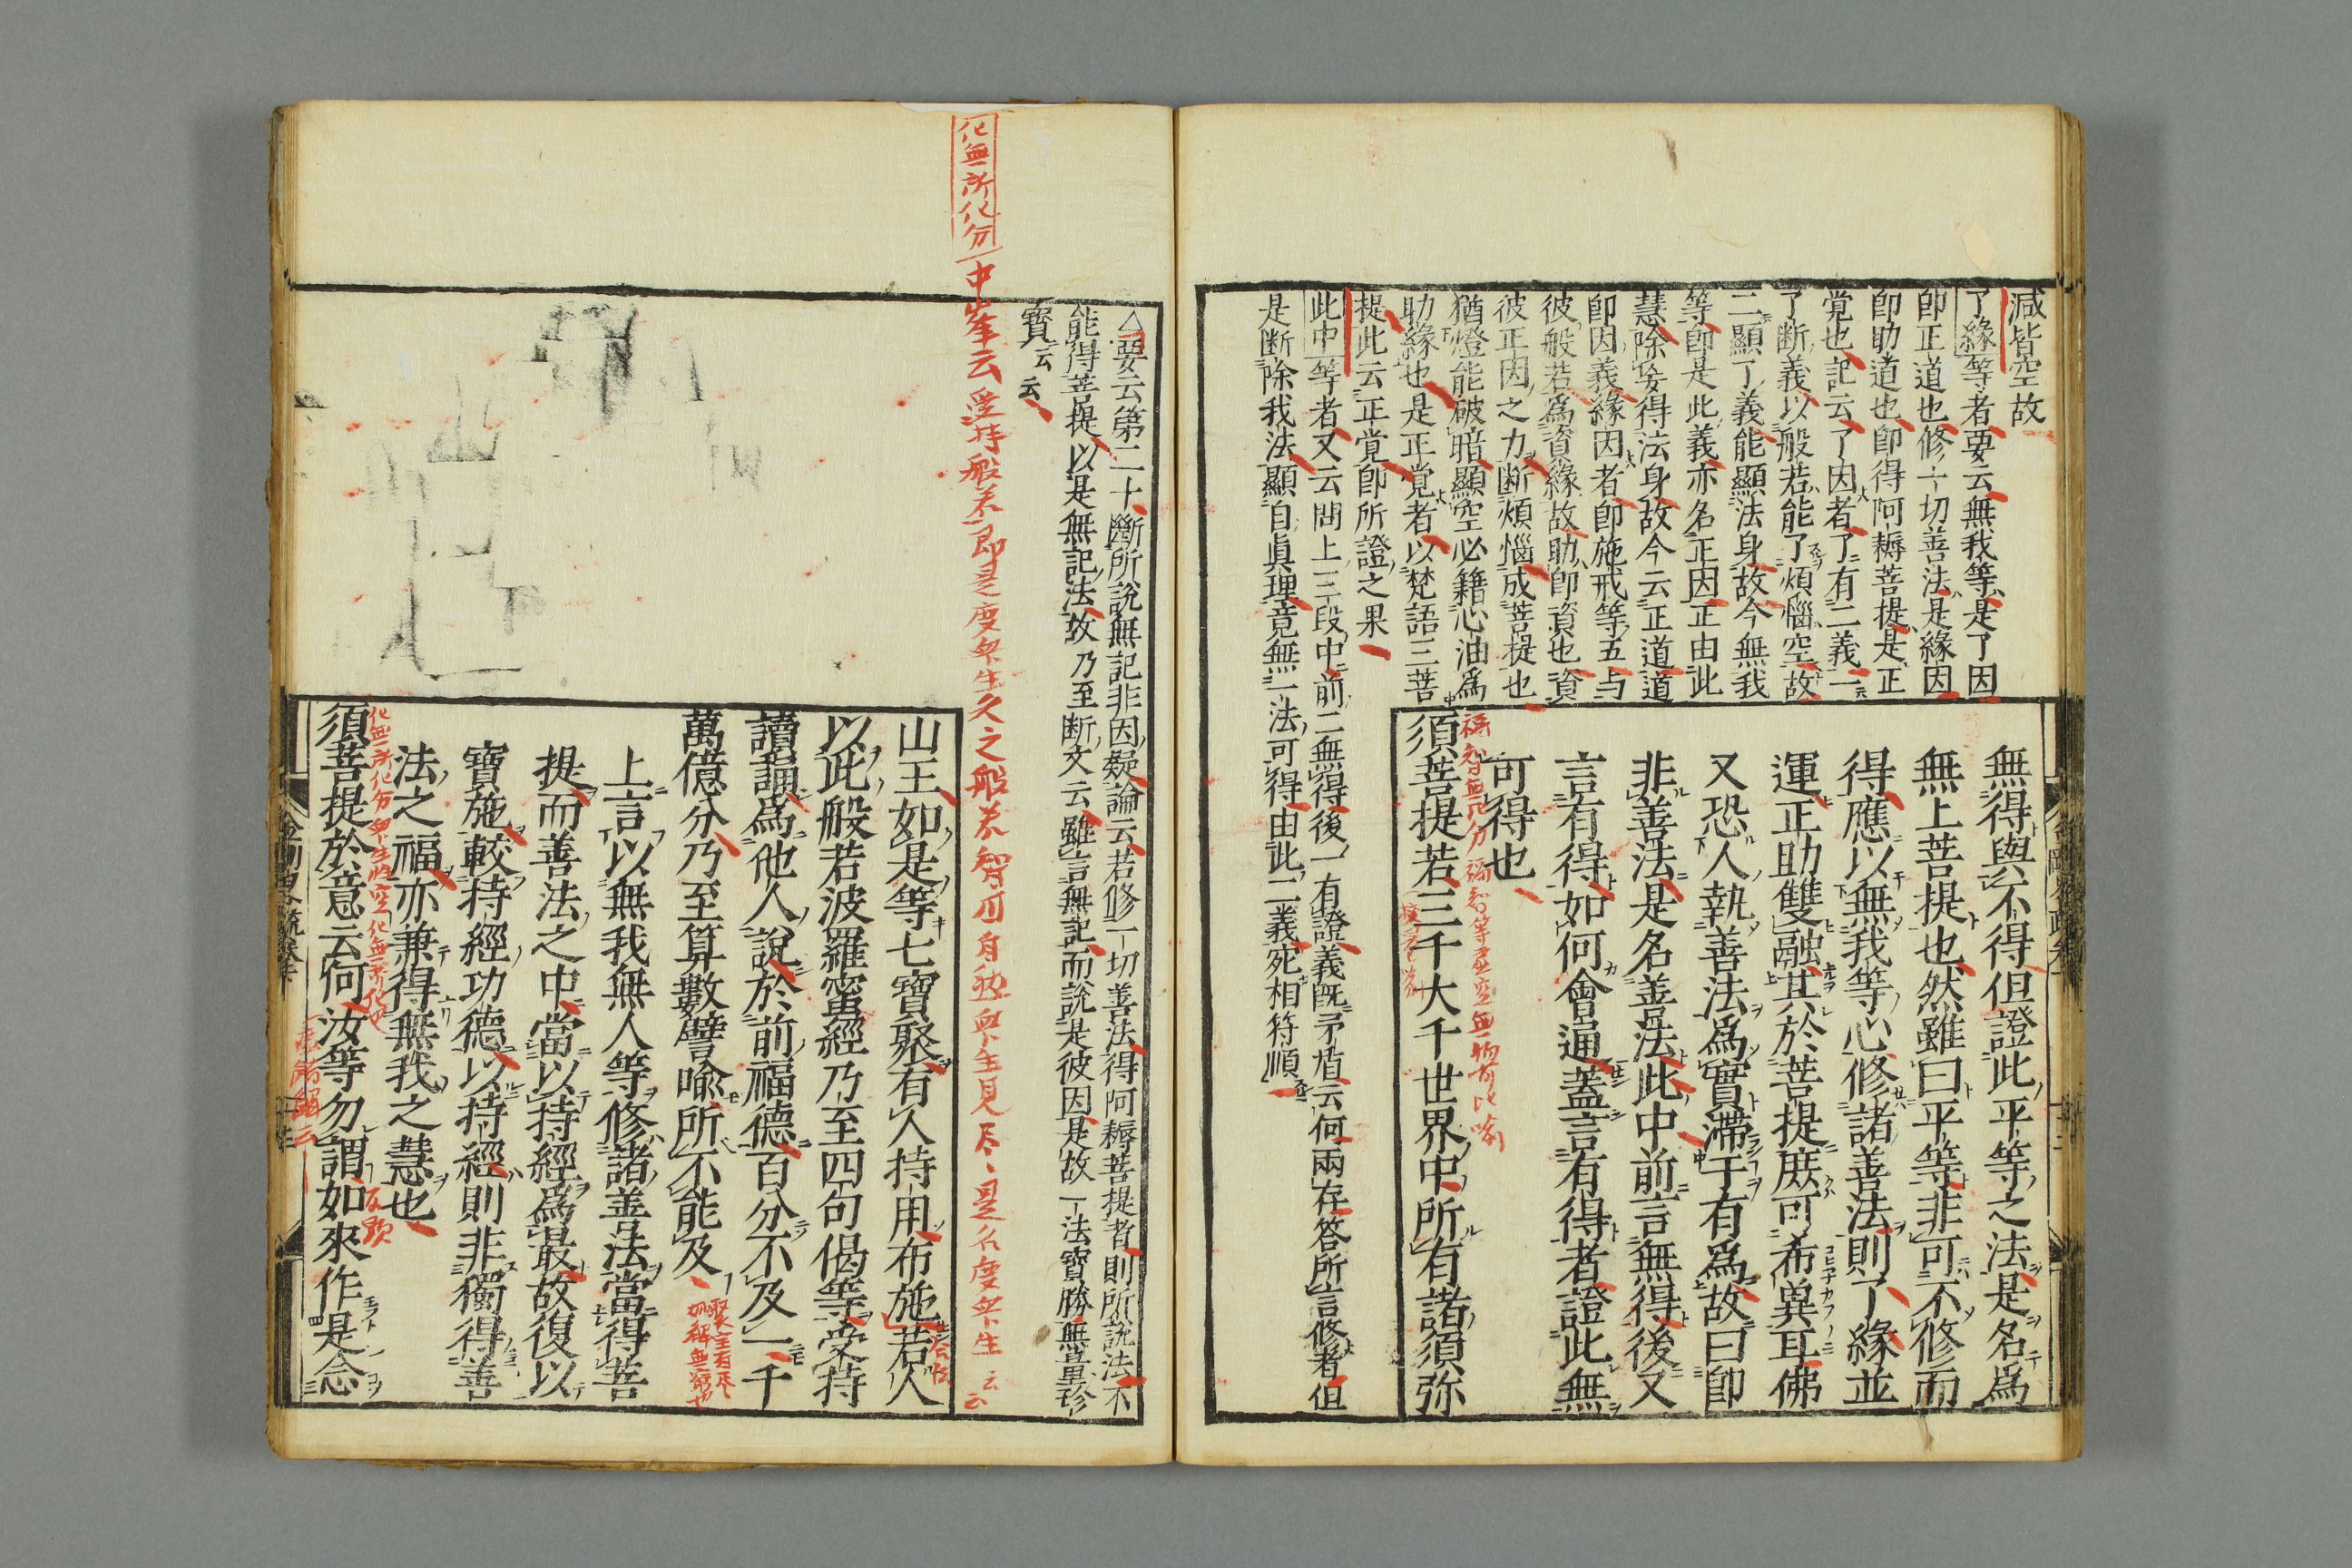 減皆空故
了縁等者要云無我等是了因
即正道也修一切善法是縁因
即助道也即得阿耨菩提是正
覚也記云了因者了有二義一
了断義以般若能了煩惱空故
二顯了義能顯法身故今無我
等即是此義亦名正因正由此
慧除妄得法身故今云正道道
即因義縁因者即施戒等五与
彼般若為資縁故助即資也資
彼正因之力断煩惱成菩提也
猶燈能破暗顯空必籍心油為
助縁也是正覚者以梵語三菩
提此云正覚即所證之果
此中等者又云問上三段中前二無得後一有證義既矛盾云何兩存答所言修者但
是断除我法顯自眞理竟無一法可得由此二義宛相符順
無得與不得但證此平等之法是名為
無上菩提也然雖曰平等非可不修而
得應以無我等心修諸善法則了緣並
運正助雙融其於菩提庶可希兾耳佛
又恐人執善法為實滯于有為故曰即
非善法是名善法此中前言無得後又
言有得如何會通蓋言有得者證此無
可得也
福智無比分 福智等虚空無物可比喻
須菩提若三千大千世界中所有諸須弥
△要云第二十斷所說無記非因疑論云若修一切善法得阿耨菩提者則所說法不
能得菩提以是無記法故乃至断文云雖言無記而說是彼因是故一法寶勝無量珍
寶云云
化無所化分 中峯云受持般若即是度衆生久之般若智用自馳衆生見尽是名度衆生云云
山王如是等七寶聚有人持用布施若人
以此般若波羅蜜經乃至四句偈等受持
讀誦為他人說於前福德百分不及一千
萬億分乃至算數譬喻所不能及
上言以無我無人等修諸善法當得菩
提而善法之中當以持經為最故復以
寶施較持經功德以持經則非獨得善
法之福亦兼得無我之慧也
化無所化分 衆生性空化無所化也
須菩提於意云何汝等勿謂如來作是念